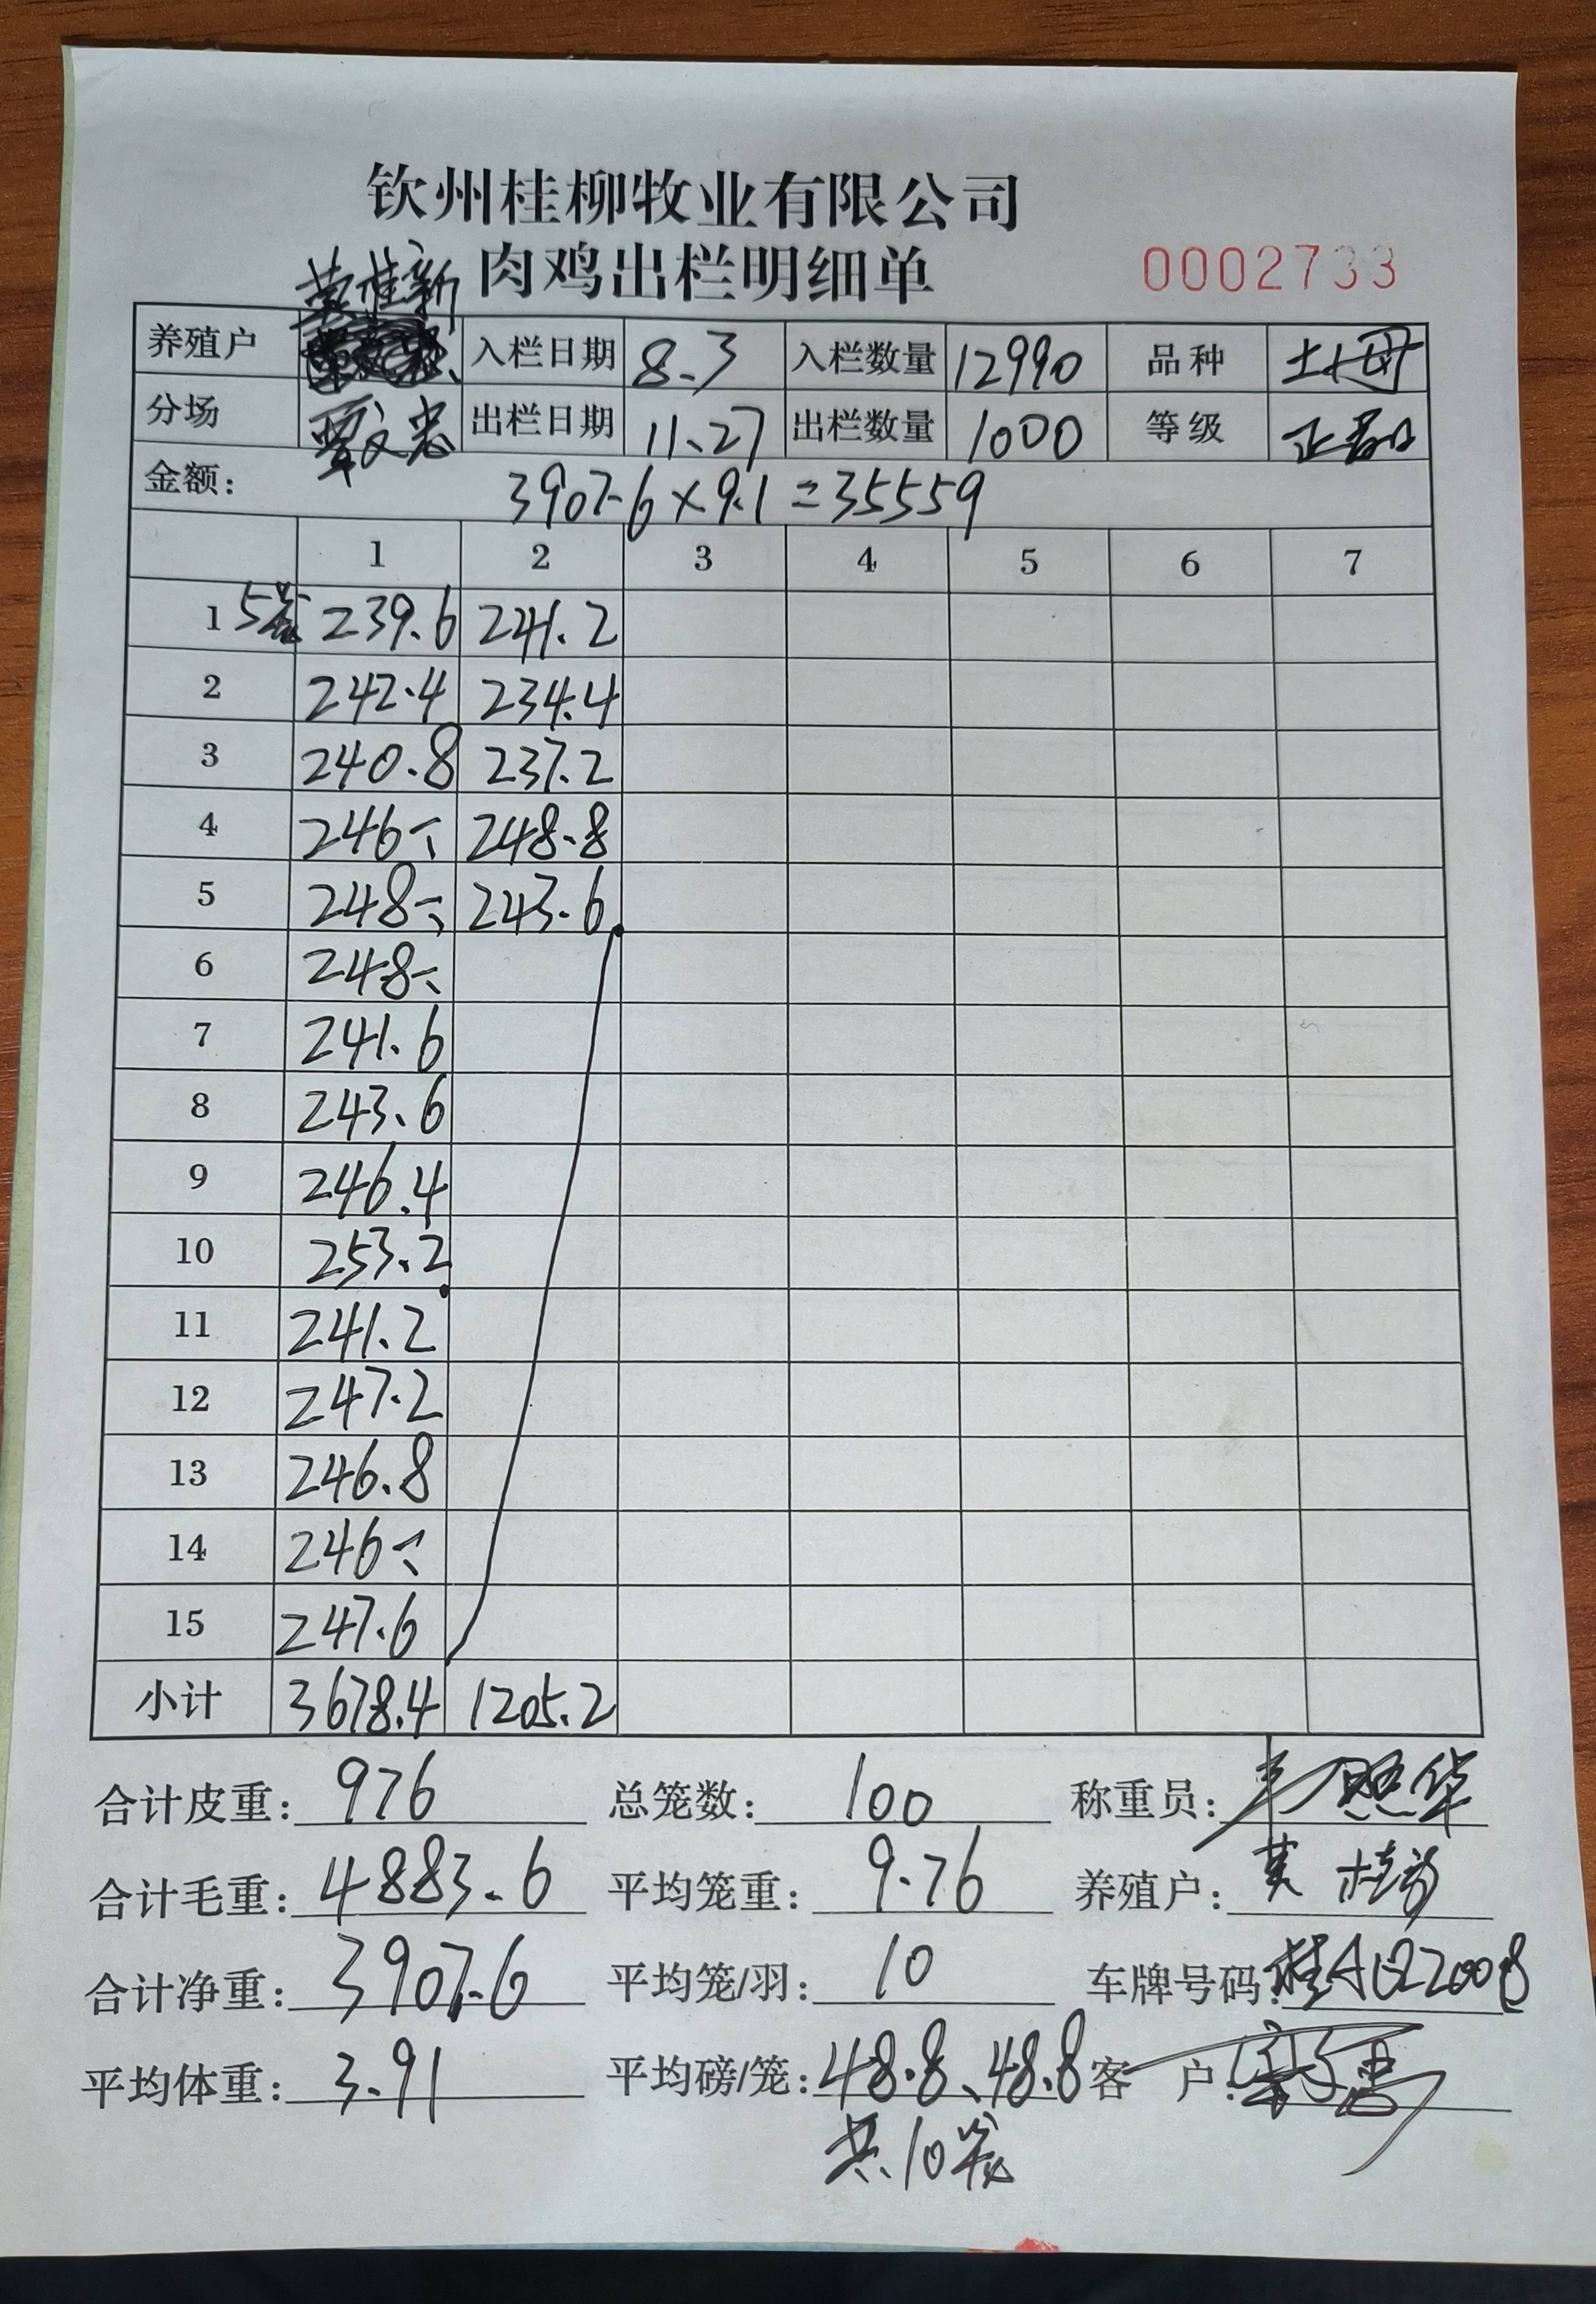 钦州桂柳牧业有限公司
肉鸡出栏明细单 0002733
养殖户 入栏日期 8.3 入栏数量 12990 品种 土母
分场 覃文忠 出栏日期 11.27 出栏数量 1000 等级 正品
金额: 3907.6×9.1=35559
1 2 3 4 5 6 7
1 5笼 239.6 241.2
2 242.4 234.4
3 240.8 237.2
4 246 248.8
5 248 243.6
6 248
7 241.6
8 243.6
9 246.4
10 253.2
11 241.2
12 247.2
13 246.8
14 246
15 247.6
小计 3678.4 1205.2
合计皮重: 976 总笼数: 100 称重员:
合计毛重: 4883.6 平均笼重: 9.76 养殖户:
合计净重: 3907.6 平均笼/羽: 10 车牌号码:
平均体重: 3.91 平均磅/笼: 48.8、48.8 客户:
共10笼